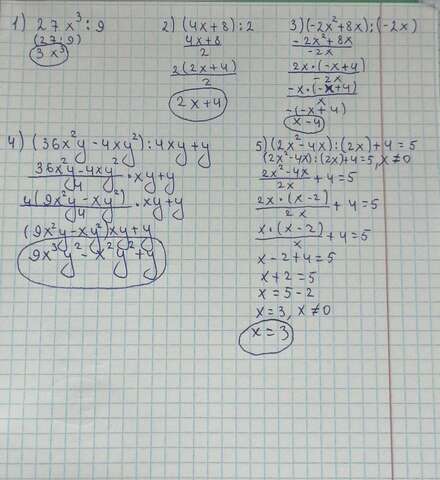 1) 27x³:9
(27:9)
3x³
2) (4x+8):2
4x+8
2
2(2x+4)
2
2x+4
3) (-2x²+8x):(-2x)
-2x²+8x
-2x
2x·(-x+4)
-2x
-x·(-x+4)
x
-(-x+4)
x-4
4) (36x²y-4xy²):4xy+y
36x²y-4xy²
4
·xy+y
4(9x²y-xy²)
4
·xy+y
(9x²y-xy²)xy+y
9x³y²-x²y²+y
5) (2x²-4x):(2x)+4=5
(2x²-4x):(2x)+4=5, x≠0
2x²-4x
2x
+4=5
2x·(x-2)
2x
+4=5
x·(x-2)
x
+4=5
x-2+4=5
x+2=5
x=5-2
x=3, x≠0
x=3